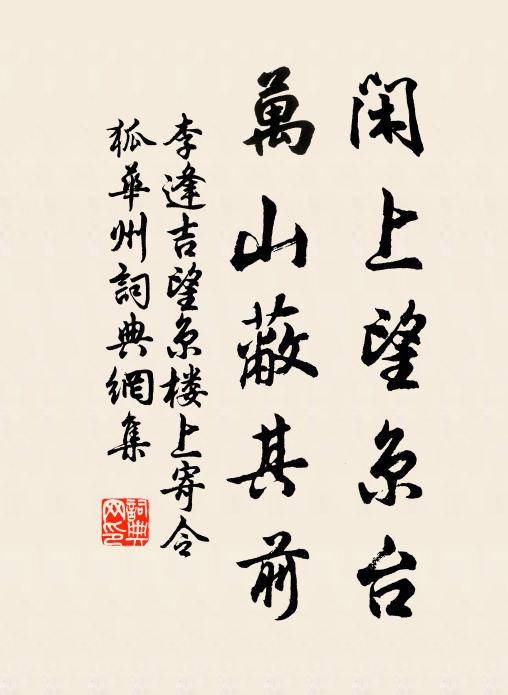 闲上望京台
萬山蔽其前
李逢吉望京楼上寄令
狐華州詞典網集
詞典
网印